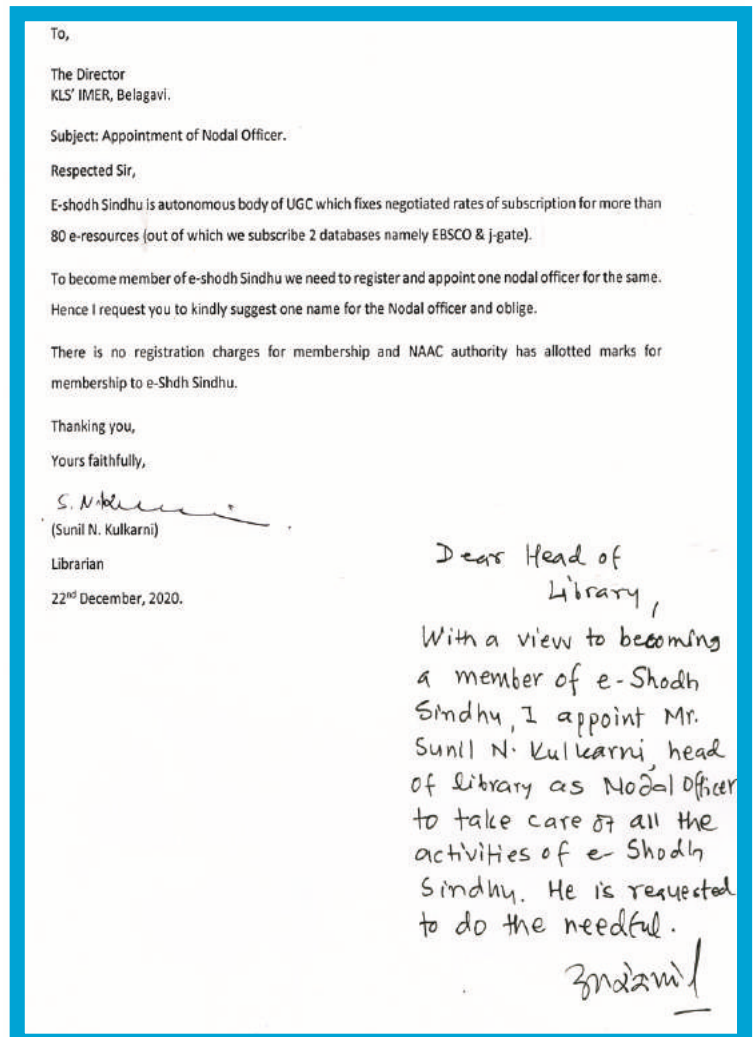 To,
The Director
KLS' IMER, Belagavi.
Subject: Appointment of Nodal Officer.
Respected Sir,
E-shodh Sindhu is autonomous body of UGC which fixes negotiated rates of subscription for more than
80 e-resources (out of which we subscribe 2 databases namely EBSCO & j-gate).
To become member of e-shodh Sindhu we need to register and appoint one nodal officer for the same.
Hence I request you to kindly suggest one name for the Nodal officer and oblige.
There is no registration charges for membership and NAAC authority has allotted marks for
membership to e-Shdh Sindhu.
Thanking you,
Yours faithfully,
(Sunil N. Kulkarni)
Librarian
22nd December, 2020.
Dear Head of
Library,
With a view to becoming
a member of e-Shodh
Sindhu, I appoint Mr.
Sunil N. Kulkarni, head
of library as Nodal Officer
to take care of all the
activities of e-Shodh
Sindhu. He is requested
to do the needful.